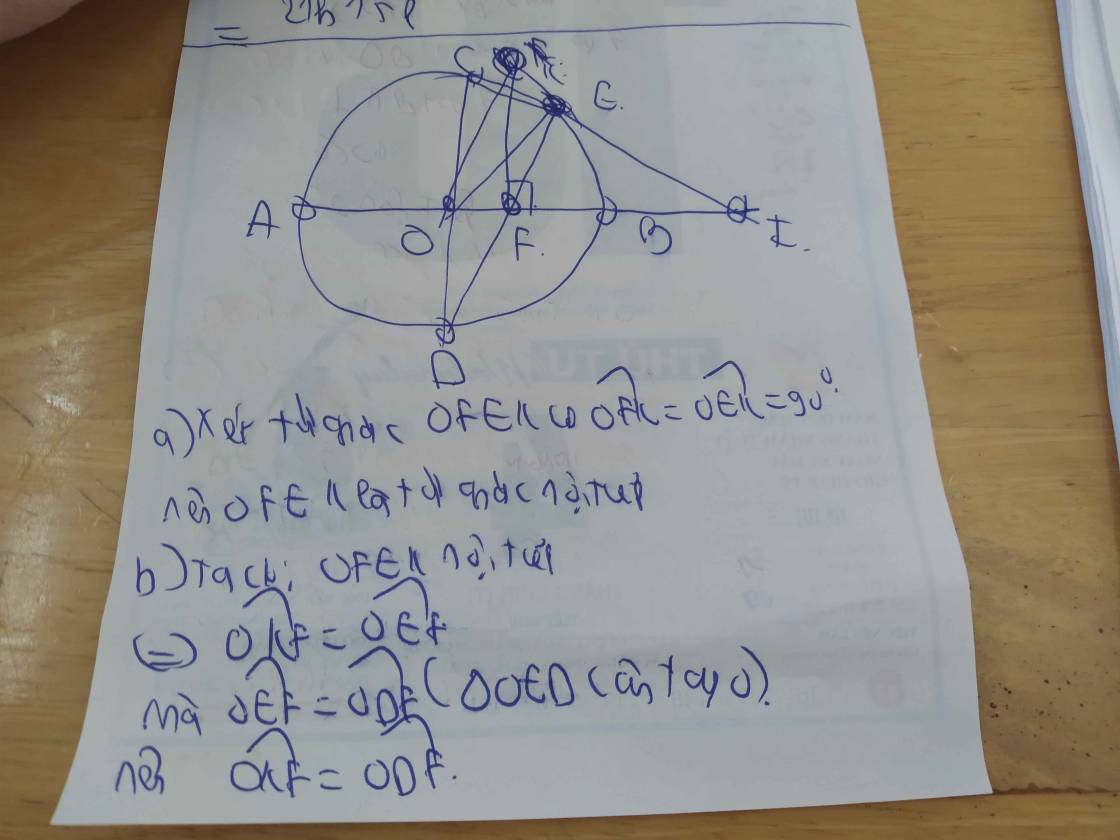 C K
E.
A O F. B I.
D
a) Xét tứ giác OFEK có OFK = OEK = 90°
nên OFEK là tứ giác nội tiếp
b) Ta có: OFEK nội tiếp
(=) OKF = OEF
mà OEF = ODF (ΔOED cân tại O).
nên OKF = ODF.